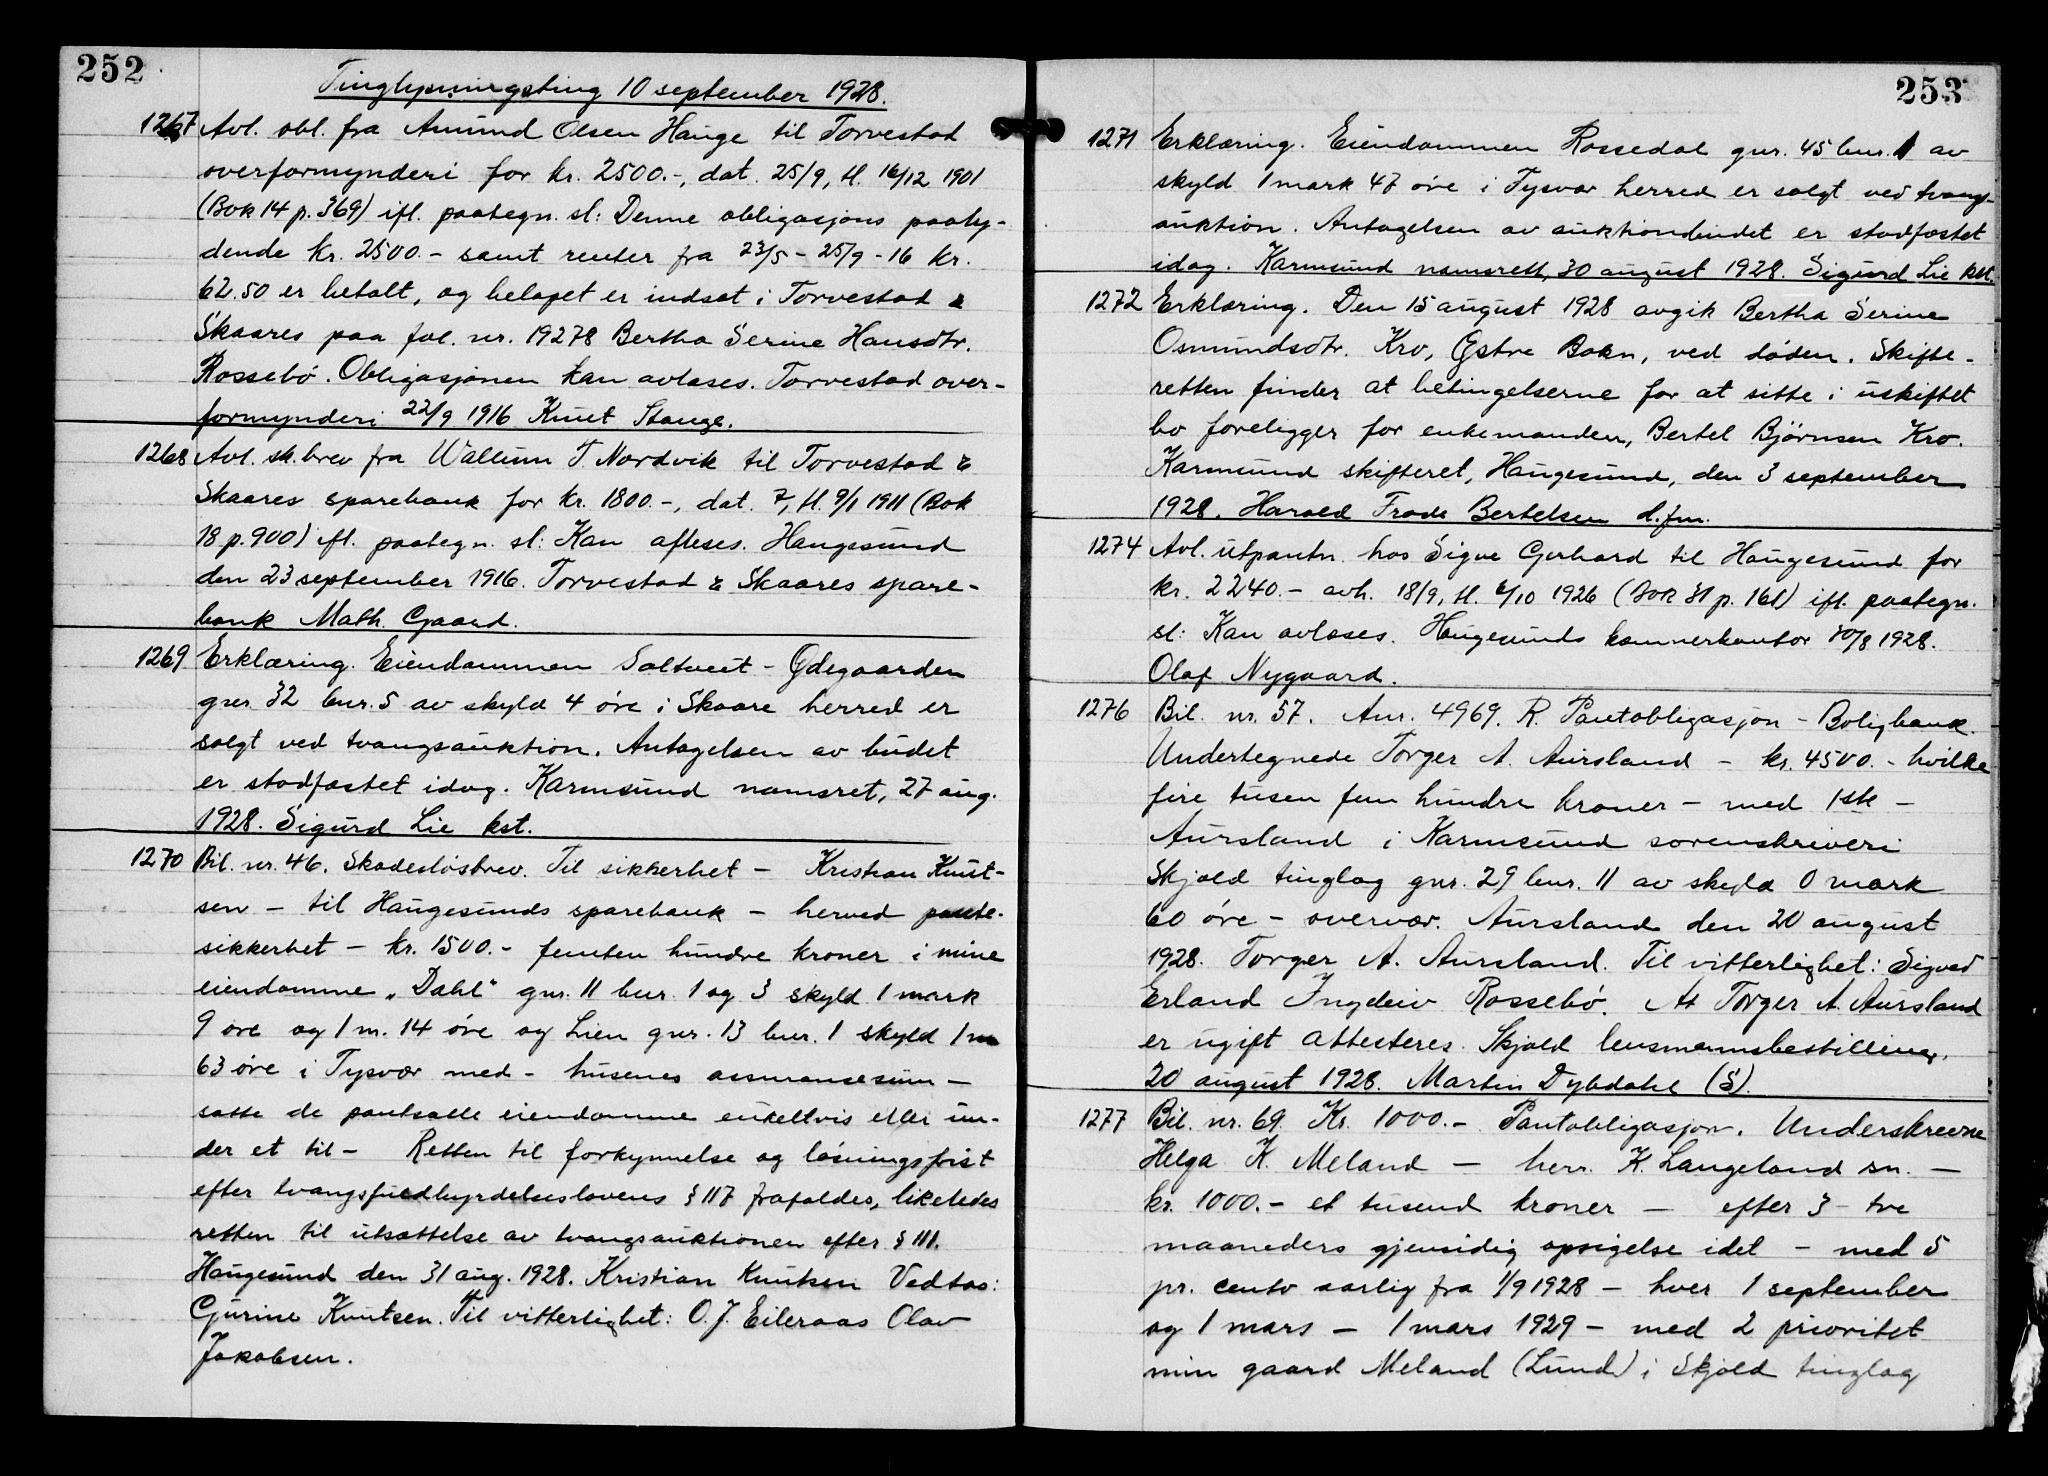 252
Tinglysningsting 10 september 1928.
1267 Avl. obl. fra Amund Olsen Hauge til Torvestad
overformynderi for kr. 2500.-, dat. 25/9, tl. 16/12 1901
(Bok 14 p. 369) ifl. paategn. sl: Denne obligasjons paaly-
dende kr. 2500.- samt renter fra 23/5 - 25/9 - 16 kr.
62.50 er betalt, og beløpet er indsat i Torvestad &
Skaares paa fol. nr. 19278 Bertha Serine Hansdtr.
Rossebö. Obligasjonen kan avlæses. Torvestad over-
formynderi 22/9 1916 Knut Stange.
1268 Avl. sk.brev fra Wallum T Nordvik til Torvestad &
Skaares sparebank for kr. 1800.-, dat. 7, tl. 9/1 1911 (Bok
18 p. 900) ifl. paategn. sl: Kan aflæses. Haugesund
den 23 september 1916. Torvestad & Skaares spare-
bank Math. Gaard.
1269 Erklæring. Eiendommen Saltveit - Ødegaarden
gnr. 32 bnr. 5 av skyld 4 øre i Skaare herred er
solgt ved tvangsauktion. Antagelsen av budet
er stadfæstet idag. Karmsund namsret, 27 aug.
1928. Sigurd Lie kst.
1270 Bil. nr. 46. Skadesløsbrev. Til sikkerhet - Kristian Knut-
sen - til Haugesunds sparebank - herved pante-
sikkerhet - kr. 1500.- femten hundre kroner i mine
eiendomme „Dahl" gnr. 11 bnr. 1 og 3 skyld 1 mark
9 øre og 1 m. 14 øre og Lien gnr. 13 bnr. 1 skyld 1 m
63 øre i Tysvær med - husenes assuransesum -
satte de pantsatte eiendomme enkeltvis eller un-
der et til - Retten til forkynnelse og løsningsfrist
efter tvangsfuldbyrdelseslovens § 117 frafaldes, likeledes
retten til utsættelse av tvangsauktionen efter § 111.
Haugesund den 31 aug. 1928. Kristian Knutsen Vedtas:
Gurine Knutsen. Til vitterlighet: O. J. Eileraas Olav
Jakobsen.
253
1271 Erklæring. Eiendommen Rossedal gnr. 45 bnr. 1 av
skyld 1 mark 47 øre i Tysvær herred er solgt ved tvangs-
auktion. Antagelsen av auktionbudet er stadfæstet
idag. Karmsund namsrett, 30 august 1928. Sigurd Lie kst.
1272 Erklæring. Den 15 august 1928 avgik Bertha Serine
Osmundsdtr. Kro, Østre Bokn, ved døden. Skifte-
retten finder at betingelserne for at sitte i uskiftet
bo foreligger for enkemanden, Bertel Björnsen Kro.
Karmsund skifteret, Haugesund, den 3 september
1928. Harald Frode Bertelsen d.fm.
1274 Avl. utpantn. hos Sigve Gerhard til Haugesund for
kr. 2240.- avh. 18/9, tl. 6/10 1926 (Bok 31 p. 161) ifl. paategn.
sl: Kan avlæses. Haugesunds kemnerkontor 30/8 1928.
Olaf Nygaard.
1276 Bil. nr. 57. Anr. 4969. R. Pantobligasjon - Boligbank.
Undertegnede Torger A. Aursland - kr. 4500.- hvilke
fire tusen fem hundre kroner - med 1ste -
Aursland i Karmsund sorenskriveri
Skjold tinglag gnr. 29 bnr. 11 av skyld 0 mark
60 øre - overvær. Aursland den 20 august
1928. Torger A. Aursland. Til vitterlighet: Sigvad
Erland Ingdeiv Rossebö. At Torger A. Aursland
er ugift attesteres. Skjold lensmannsbestilling.
20 august 1928. Martin Dybdahl (S).
1277 Bil. nr. 69. Kr. 1000.- Pantobligasjon. Underskrevne
Helga K. Meland - herr. K. Langeland sn. -
kr. 1000.- et tusend kroner - efter 3 - tre
maaneders gjensidig opsigelse idet - med 5
pr. cento aarlig fra 1/9 1928 - hver 1 september
og 1 mars - 1 mars 1929 - med 2 prioritet
min gaard Meland (Lund) i Skjold tinglag